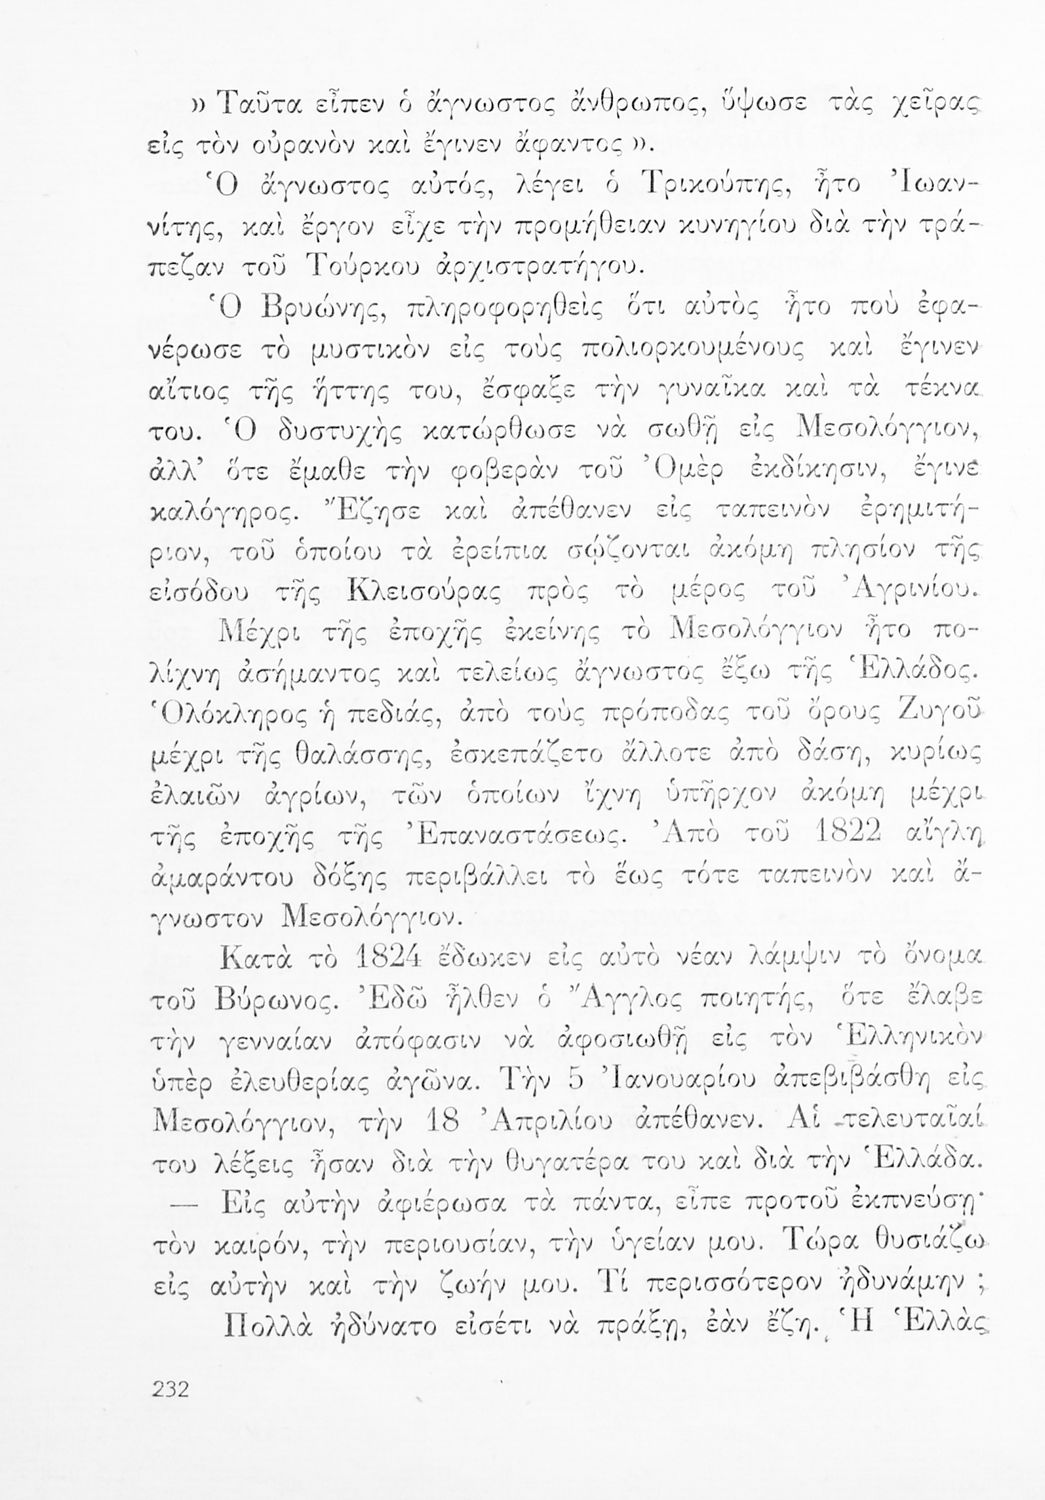 » Ταῦτα εἶπεν ὁ ἄγνωστος ἄνθρωπος, ὕψωσε τὰς χεῖρας
εἰς τὸν οὐρανὸν καὶ ἔγινεν ἄφαντος ».
Ὁ ἄγνωστος αὐτός, λέγει ὁ Τρικούπης, ἦτο Ἰωαν-
νίτης, καὶ ἔργον εἶχε τὴν προμήθειαν κυνηγίου διὰ τὴν τρά-
πεζαν τοῦ Τούρκου ἀρχιστρατήγου.
Ὁ Βρυώνης, πληροφορηθεὶς ὅτι αὐτὸς ἦτο ποὺ ἐφα-
νέρωσε τὸ μυστικὸν εἰς τοὺς πολιορκουμένους καὶ ἔγινεν
αἴτιος τῆς ἥττης του, ἔσφαξε τὴν γυναῖκα καὶ τὰ τέκνα
του. Ὁ δυστυχὴς κατώρθωσε νὰ σωθῇ εἰς Μεσολόγγιον,
ἀλλ’ ὅτε ἔμαθε τὴν φοβερὰν τοῦ Ὀμὲρ ἐκδίκησιν, ἔγινε
καλόγηρος. Ἔζησε καὶ ἀπέθανεν εἰς ταπεινὸν ἐρημιτή-
ριον, τοῦ ὁποίου τὰ ἐρείπια σῴζονται ἀκόμη πλησίον τῆς
εἰσόδου τῆς Κλεισούρας πρὸς τὸ μέρος τοῦ Ἀγρινίου.
Μέχρι τῆς ἐποχῆς ἐκείνης τὸ Μεσολόγγιον ἦτο πο-
λίχνη ἀσήμαντος καὶ τελείως ἄγνωστος ἔξω τῆς Ἑλλάδος.
Ὁλόκληρος ἡ πεδιάς, ἀπὸ τοὺς πρόποδας τοῦ ὄρους Ζυγοῦ
μέχρι τῆς θαλάσσης, ἐσκεπάζετο ἄλλοτε ἀπὸ δάση, κυρίως
ἐλαιῶν ἀγρίων, τῶν ὁποίων ἴχνη ὑπῆρχον ἀκόμη μέχρι
τῆς ἐποχῆς τῆς Ἐπαναστάσεως. Ἀπὸ τοῦ 1822 αἴγλη
ἀμαράντου δόξης περιβάλλει τὸ ἕως τότε ταπεινὸν καὶ ἄ-
γνωστον Μεσολόγγιον.
Κατὰ τὸ 1824 ἔδωκεν εἰς αὐτὸ νέαν λάμψιν τὸ ὄνομα
τοῦ Βύρωνος. Ἐδῶ ἦλθεν ὁ Ἄγγλος ποιητής, ὅτε ἔλαβε
τὴν γενναίαν ἀπόφασιν νὰ ἀφοσιωθῇ εἰς τὸν Ἑλληνικὸν
ὑπὲρ ἐλευθερίας ἀγῶνα. Τὴν 5 Ἰανουαρίου ἀπεβιβάσθη εἰς
Μεσολόγγιον, τὴν 18 Ἀπριλίου ἀπέθανεν. Αἱ τελευταῖαί
του λέξεις ἦσαν διὰ τὴν θυγατέρα του καὶ διὰ τὴν Ἑλλάδα.
— Εἰς αὐτὴν ἀφιέρωσα τὰ πάντα, εἶπε προτοῦ ἐκπνεύσῃ·
τὸν καιρόν, τὴν περιουσίαν, τὴν ὑγείαν μου. Τώρα θυσιάζω
εἰς αὐτὴν καὶ τὴν ζωήν μου. Τί περισσότερον ἠδυνάμην ;
Πολλὰ ἠδύνατο εἰσέτι νὰ πράξῃ, ἐὰν ἔζη. Ἡ Ἑλλὰς
232